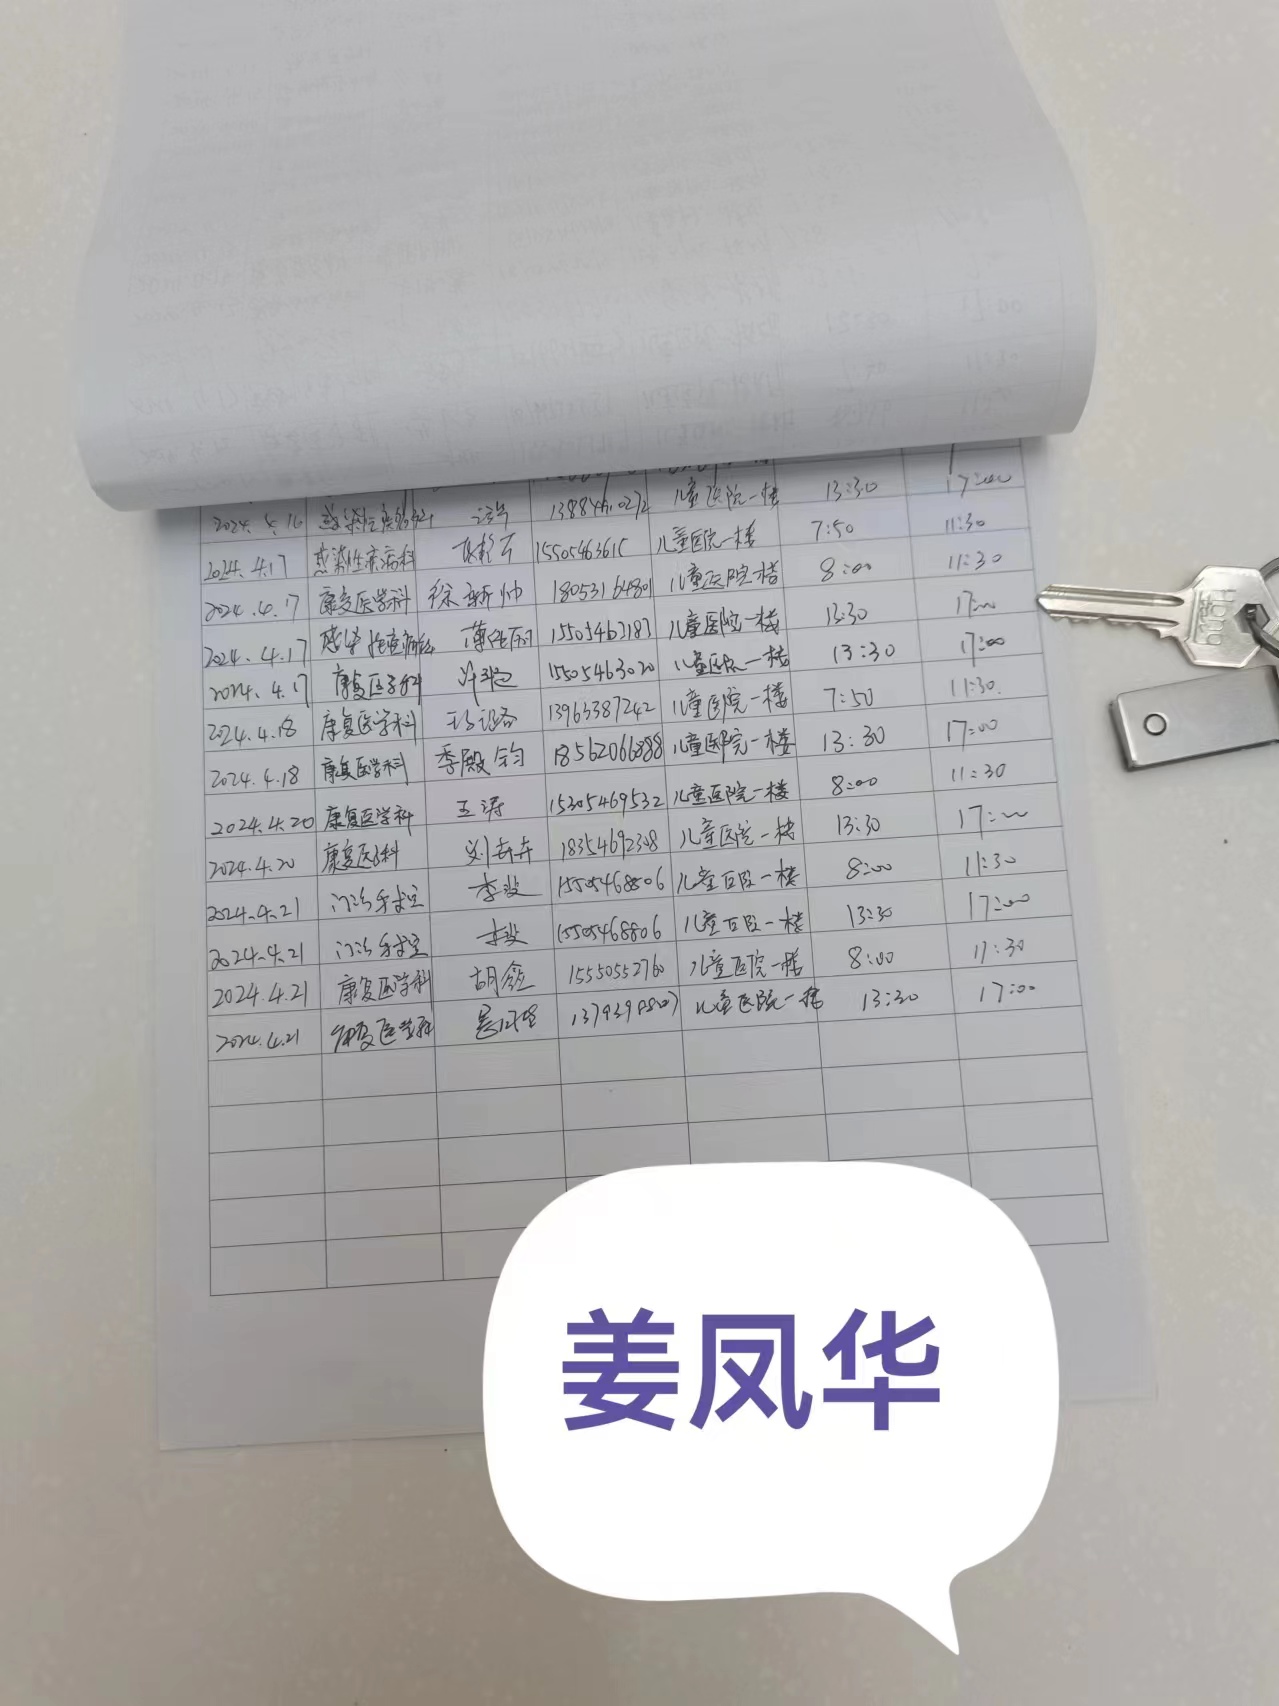 2024.4.16 13884610272 儿童医院一楼 13:30 17:00
2024.4.17 感染性疾病科 15505463615 儿童医院一楼 7:50 11:30
2024.4.17 康复医学科 徐新帅 儿童医院一楼 8:00 11:30
2024.4.17 儿童医院一楼 13:30 17:00
2024.4.17 康复医学科 15505463020 儿童医院一楼 13:30 17:00
2024.4.18 康复医学科 13963387242 儿童医院一楼 7:50 11:30
2024.4.18 康复医学科 季殿钧 18562066888 儿童医院一楼 13:30 17:00
2024.4.20 康复医学科 王涛 15305469532 儿童医院一楼 8:00 11:30
2024.4.20 康复医学科 刘卉卉 儿童医院一楼 13:30 17:00
2024.4.21 门诊手术室 15505468806 儿童医院一楼 8:00 11:30
2024.4.21 门诊手术室 15505468806 儿童医院一楼 13:30 17:00
2024.4.21 康复医学科 胡鑫 15550552760 儿童医院一楼 8:00 11:30
2024.4.21 康复医学科 儿童医院一楼 13:30 17:00
姜凤华